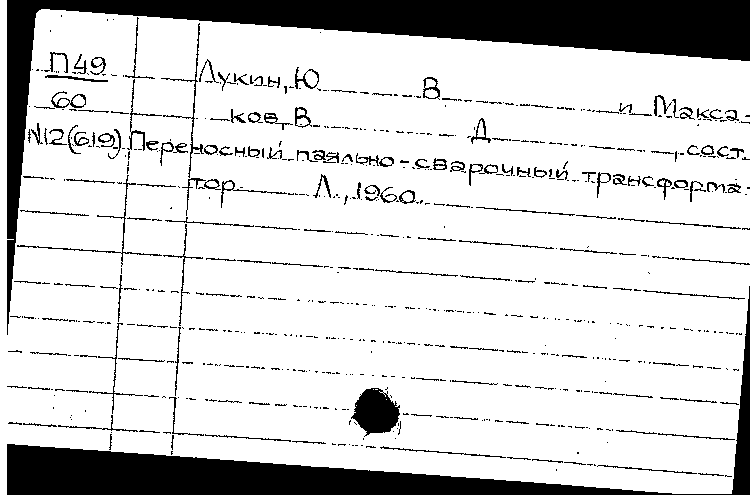 П49
60
N12(619)
Лукин, Ю В и Макса-
ков, В Д , сост.
Переносный паяльно-сварочный трансформа-
тор Л., 1960.